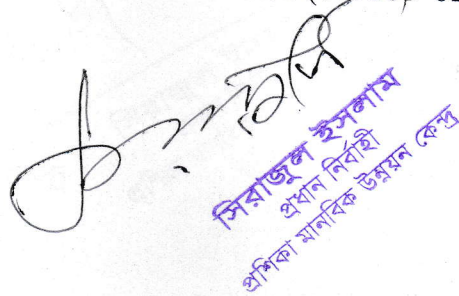 সিরাজুল ইসলাম
প্রধান নির্বাহী
প্রশিকা মানবিক উন্নয়ন কেন্দ্র